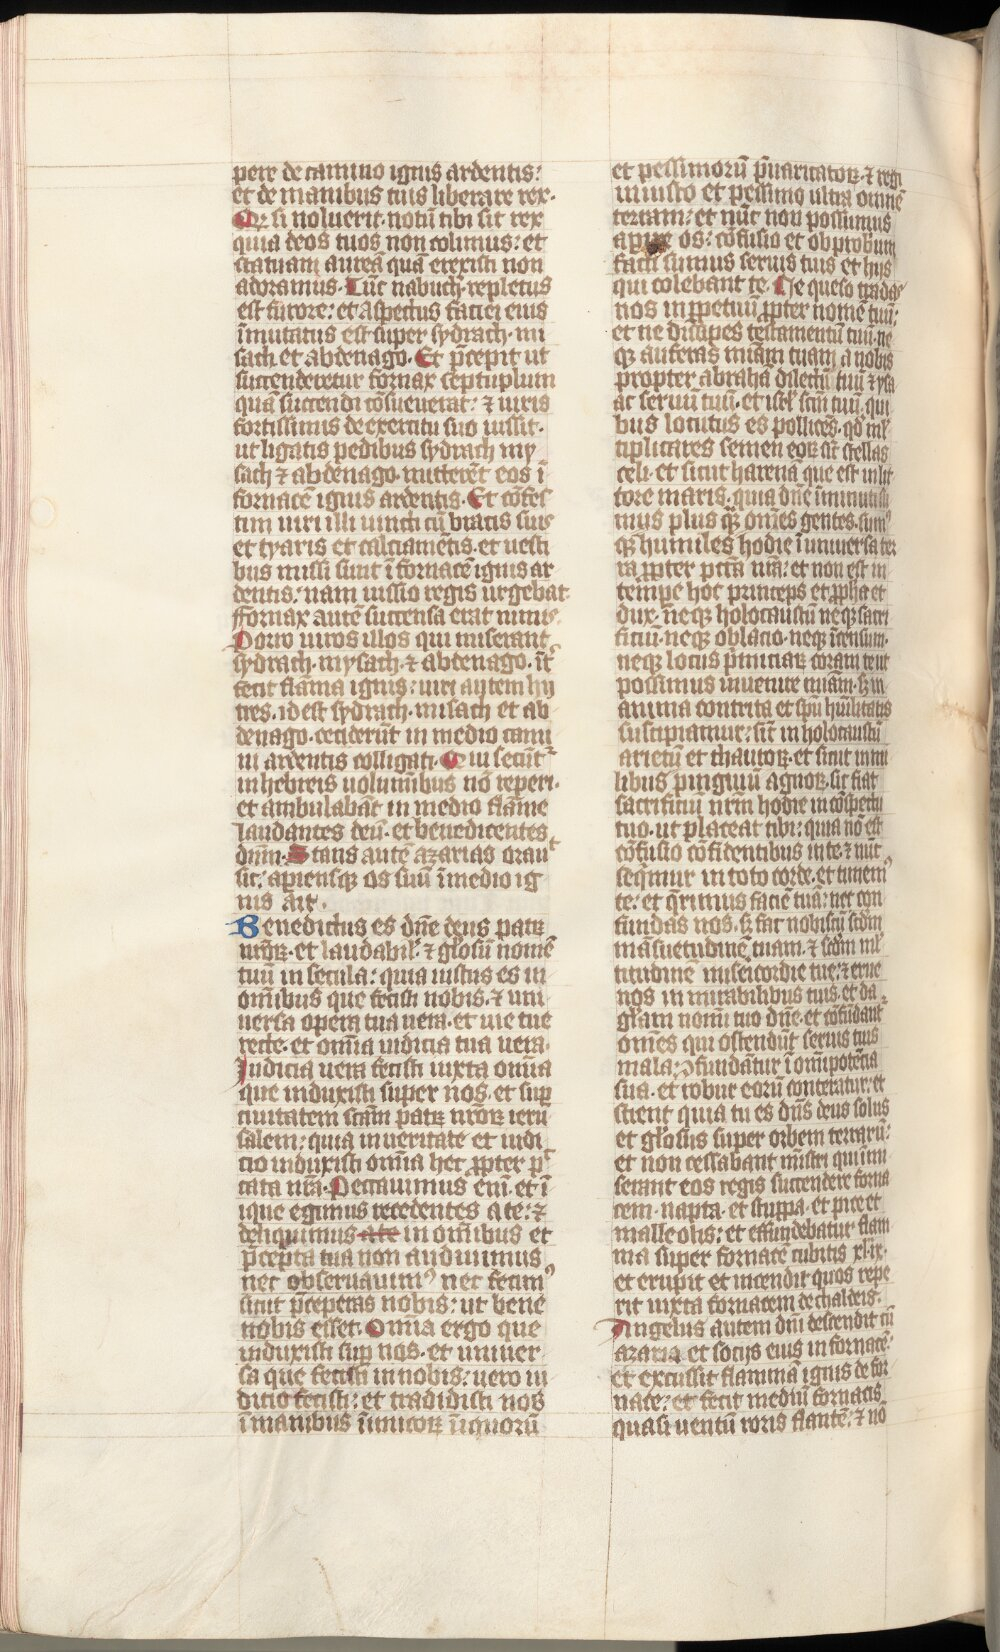 pere de camino ignis ardentis:
et de manibus tuis liberare rex.
Qͻ si noluerit. notū tibi sit rex
quia deos tuos non colimus: et
statuam aureā quā erexisti non
adoramus. Tūc nabuch. repletus
est furore: et aspectus faciei eius
īmutatus est super sydrach. mi
sach et abdenago. Et p̄cepit ut
succenderetur fornax septuplum
quā succendi cōsueuerat: ⁊ uiris
fortissimis de exercitu suo iussit.
ut ligatis pedibus sydrach my
sach ⁊ abdenago. mitterēt eos ī
fornacē ignis ardentis. Et cōfes
tim uiri illi uincti cū bracis suis
et tyaris et calciamētis. et uesti
bus missi sunt ī fornacē ignis ar
dentis. nam iussio regis urgebat.
ffornax autē succensa erat nimis.
Porro uiros illos qui miserant
sydrach. mysach. ⁊ abdenago. īt̄
fecit flāma ignis: uiri autem hij
tres. id est sydrach. misach et ab
denago. ceciderūt in medio cami
ni ardentis colligati. Q̄ iu secūt᷑
in hebreis uolumībus nō reperi.
et ambulabāt in medio flāme
laudantes deū. et benedicentes
dn̄m. Stans autē azarias orauᵗ
sic: apiensqꝫ os suū ī medio ig
nis ait.
Benedictus es dn̄e deus patꝝ
nr̄oꝝ. et laudabil᷑ ⁊ gl̄osū nomē
tuū in secula: quia iustus es in
om̄ibus que fecisti nobis. ⁊ uni
uersa opera tua uera. et uie tue
recte. et om̄ia iudicia tua uera.
Judicia uera fecisti iuxta om̄ia
que induxisti super nos. et sup̱
ciuitatem scām patꝝ nr̄oꝝ ieru
salem: quia in ueritate et iudi
cio induxisti om̄ia hec ꝓpter p̱
cata nr̄a. Peccauimus eni᷑. et ī
ique egimus recedentes a te: ⁊
deliquimus a te in om̄ibus et
p̄cepta tua non audiuimus
nec obseruauimꝰ nec fecimꝰ
sicut p̄ceperas nobis: ut bene
nobis esset. Omnia ergo que
induxisti sup̱ nos. et uniuer
sa que fecisti in nobis: uero iu
dicio fecisti: et tradidisti nos
ī manibus īimicoꝝ īiquorū
et pessimorū p̄uaricatoꝝ. ⁊ regi
iniusto et pessimo ultra omnē
terram: et nūc non possumus
apire os: cōfusio et obprobrium
facti sumus seruis tuis et hijs
qui colebant te. Ne queso tradas
nos in p̱petuū ꝓpter nomē tuū:
et ne dissipes testamentū tuū. ne
qꝫ auferas mīam tuam a nobis
propter abrahā dilectū tuū ⁊ ysa
ac seruū tuū. et isrl᷑ scm̄ tuū. qui
bus locutus es pollicēs. qd̄ ml᷑
tiplicares semen eoꝝ sīt stellas
celi. et sicut harenā que est in lit
tore maris. quia dn̄e īminuti su
mus plus qꝫ̄ om̄es gentes. sumꝰ
qꝫ humiles hodie ī uniuersa ter
ra ꝓpter pctā nr̄a: et non est in
tempe hoc princeps et ꝓpha et
dux. neqꝫ holocaustū neqꝫ sacri
ficiū. neqꝫ oblacio. neqꝫ īcensum.
neqꝫ locus p̄mitiaꝝ coram te ut
possimus inuenire mīam. sꝫ in
anima contrita et spū hūilitatis
suscipiamur: sīt in holocaustū
arietū et thauroꝝ. et sicut in mi
libus pinguiū agnoꝝ. sit fiat
sacrificiū nr̄m hodie in cōspectu
tuo. ut placeat tibi: quia nō est
cōfusio cōfidentibus in te. ⁊ nūc
seqīmur in toto corde. et timemꝰ
te. et q̄rimus faciē tuā: nec con
fundas nos. sꝫ fac nobiscū scdm
māsuetudinē tuam. ⁊ scdm ml᷑
titudinē misericordie tue: ⁊ erue
nos in mirabilibus tuis. et da
gl̄am nomī tuo dn̄e. et cōfūdant᷑
om̄es qui ostendūt seruis tuis
mala: ꝯfundāntur ī om̄ipotētia
sua. et robur eorū conteratur: et
scient quia tu es dn̄s deus solus
et gl̄osus super orbem terrarū:
et non cessabant mīstri qui imi
serant eos regis succendere forna
cem. napta. et stuppa. et pice et
malleolis: et effundebatur flam
ma super fornacē cubitis xl.ix.
et erupit et incendit quos repe
rit iuxta fornacem de chaldeis.
Angelus autem dn̄i descendit cū
azaria et socijs eius in fornacē.
et excussit flammā ignis de for
nace: et fecit mediū fornacis
quasi uentū roris flantē: ⁊ nō